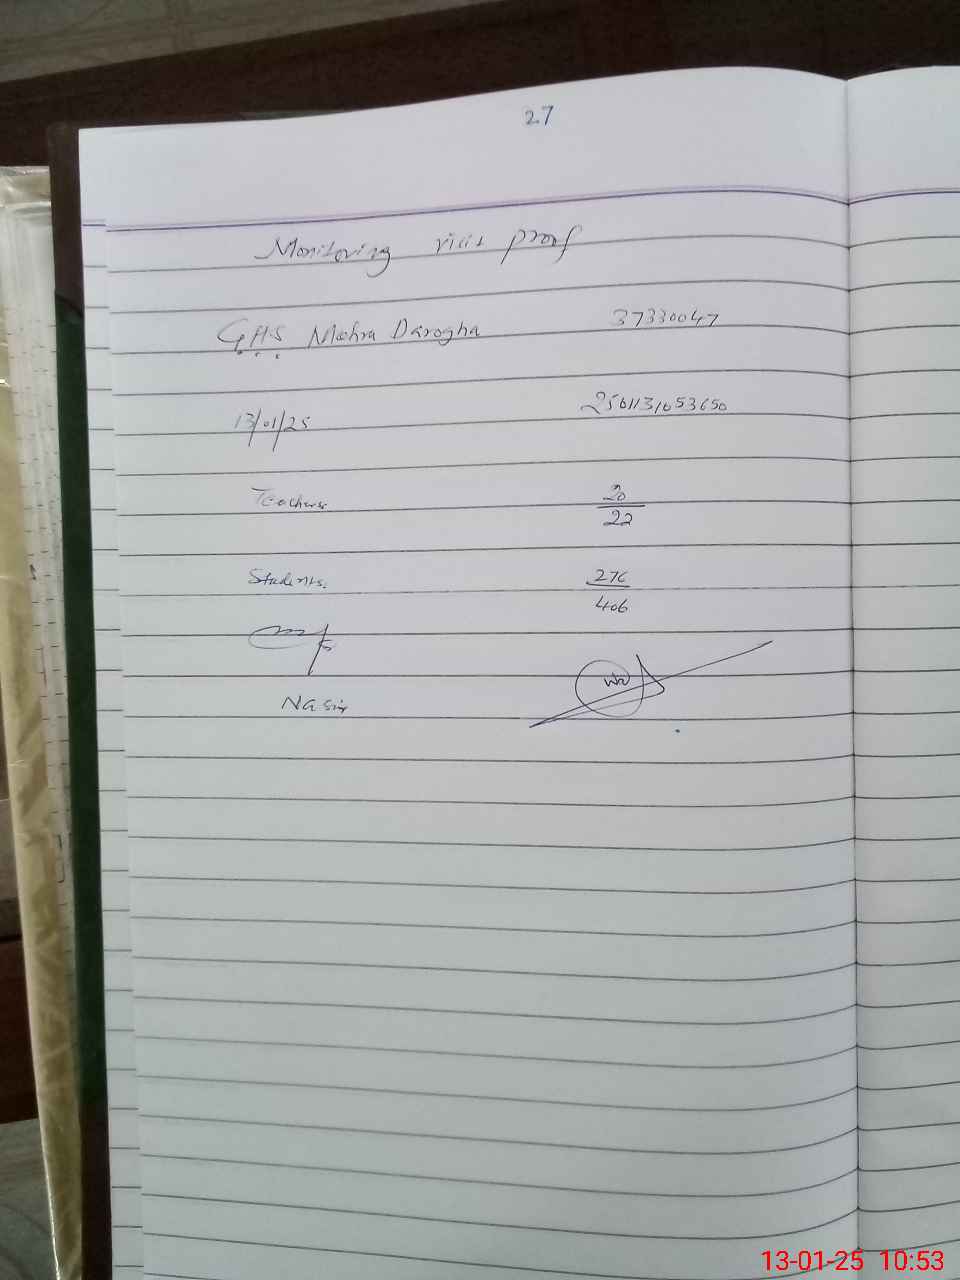 27
Monitoring visit proof
G.H.S Mohra Darogha 37330047
13/01/25 2501131053650
Teachers 20/22
Students. 276/406
Nasir
13-01-25 10:53